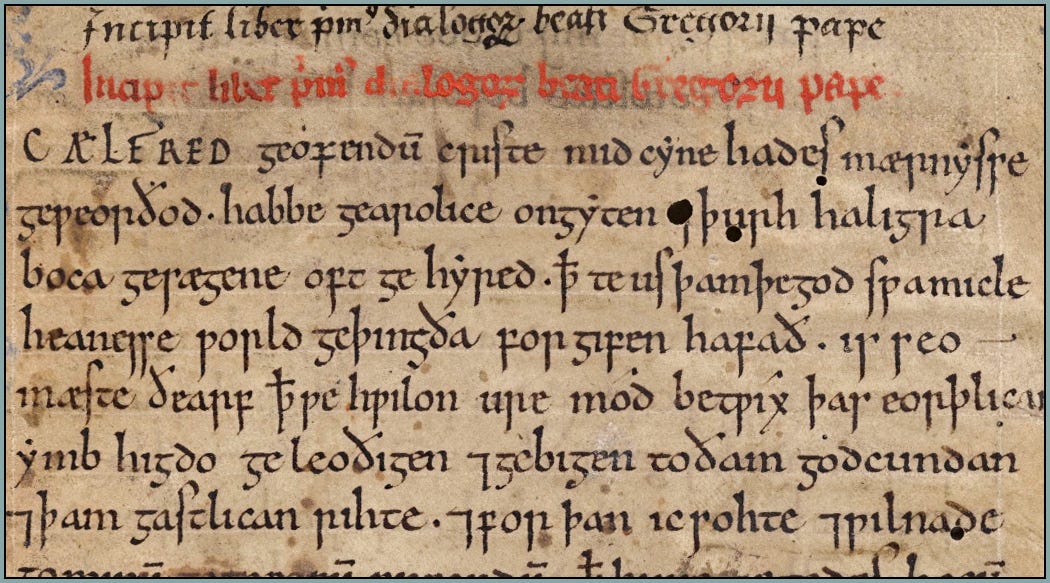 Incipit liber p̄mꝰ dialogoꝝ beati Gregorii pape
Incipit liber p̄mꝰ dialogoꝝ beati Gregorii pape
C ÆLFRED geofendū criste mid cẏne hades mærnẏsse
geƿeorðod. habbe gearolice ongẏten ⁊ þurh haligra
boca gesægene oft ge hẏred. ꝥ te us þam þe god sƿa micle
heanesse ƿorld geþingða for gifen hafað. is seo
mæste ðearf ꝥ ƿe hƿilon ure mód betƿix þas eorþlican
ẏmb higdo geleoðigen ⁊ gebigen to ðam godcundan
⁊ þam gastlican rihte. ⁊ for þan ic sohte ⁊ ƿilnade